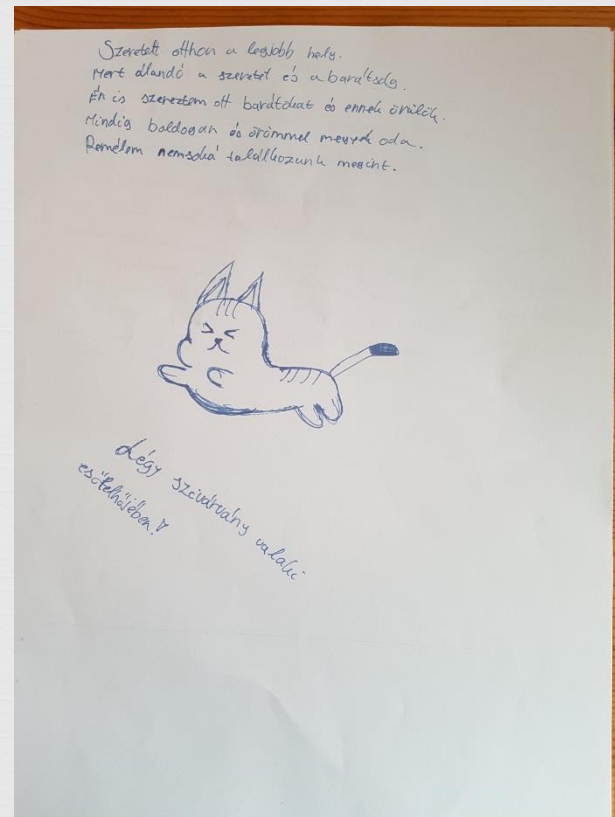 Szeretett otthon a legjobb hely.
Mert állandó a szeretet és a barátság.
Én is szereztem ott barátokat és ennek örülök.
Mindig boldogan és örömmel megyek oda.
Remélem nemsoká találkozunk megint.
Légy szivárvány valaki
esőfelhőjében!